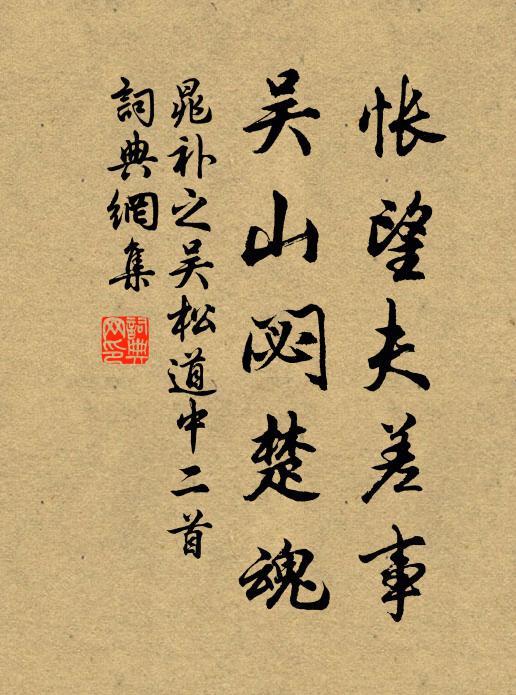 怅望夫差事
吴山閟楚魂
晁补之吴松道中二首
詞典網集
詞典
网印